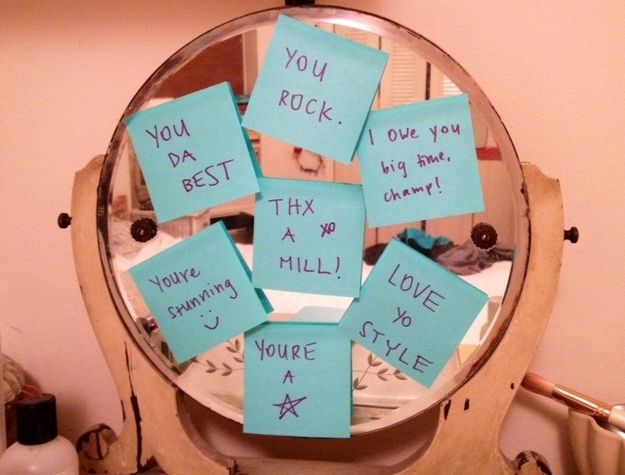 YOU
ROCK.
YOU
DA
BEST
I owe you
big time,
champ!
THX
A xo
MILL!
You're
stunning
LOVE
YO
STYLE
YOU'RE
A